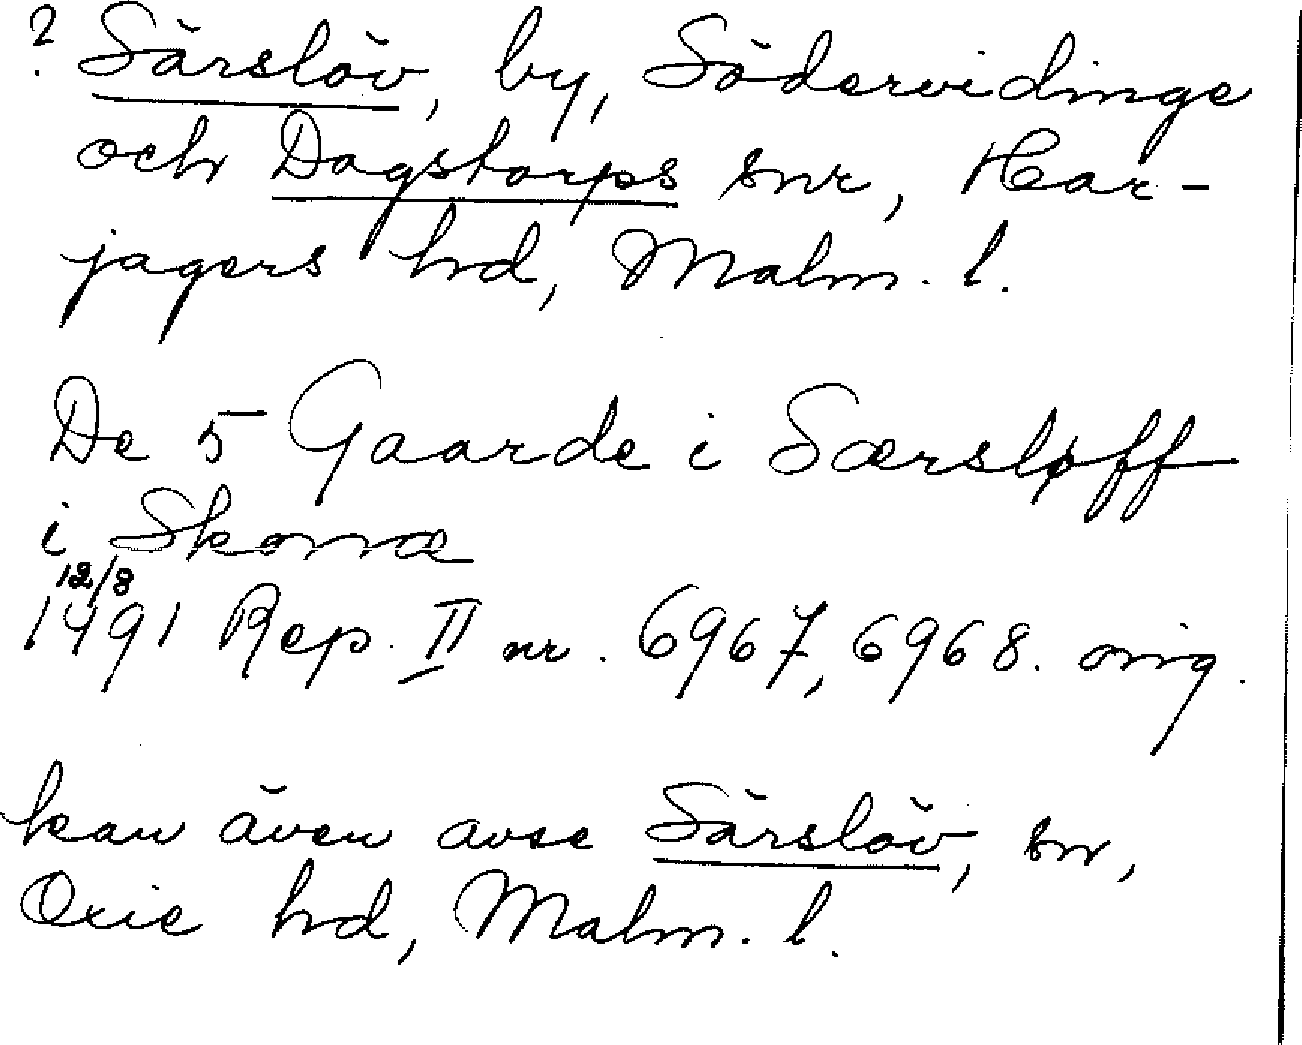 ? Särslöv, by, Södervidinge
och Dagstorps snr, Har-
jagers hrd, Malm. l.
De 5 Gaarde i Særsløff
i Skonæ
12/8
1491 Rep. II nr. 6967, 6968. orig.
kan även avse Särslöv, sn,
Oxie hrd, Malm. l.